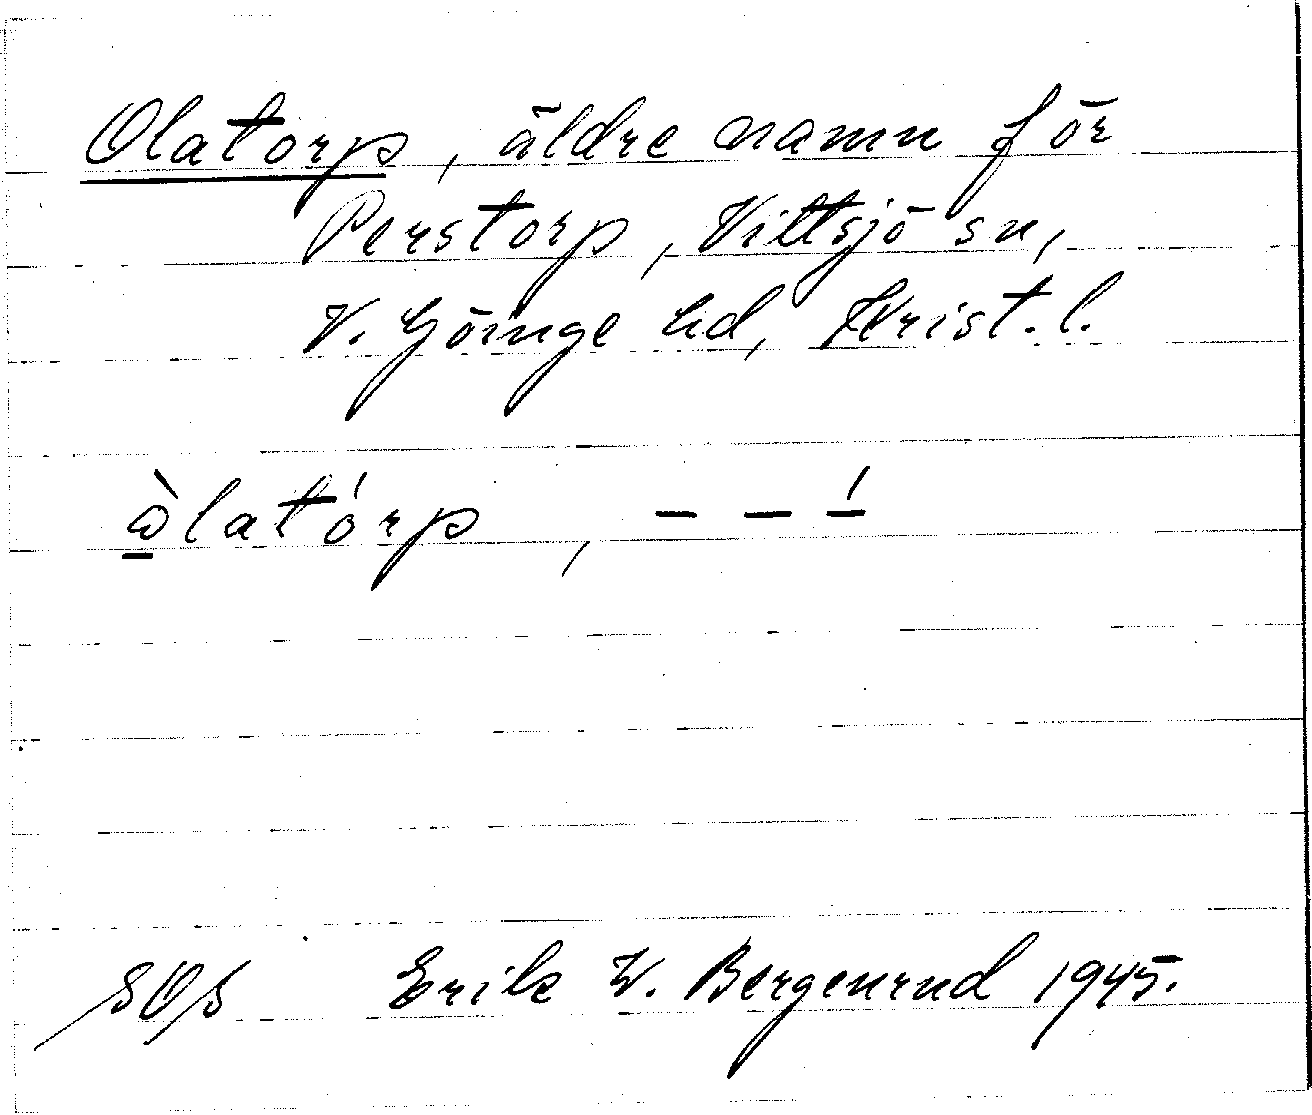 Olatorp, äldre namn för
Perstorp, Vittsjö sn,
V. Göinge hd, Krist. l.
ꞷ̱̀latórp, – – –́
SOS Erik W. Bergenrud 1945.